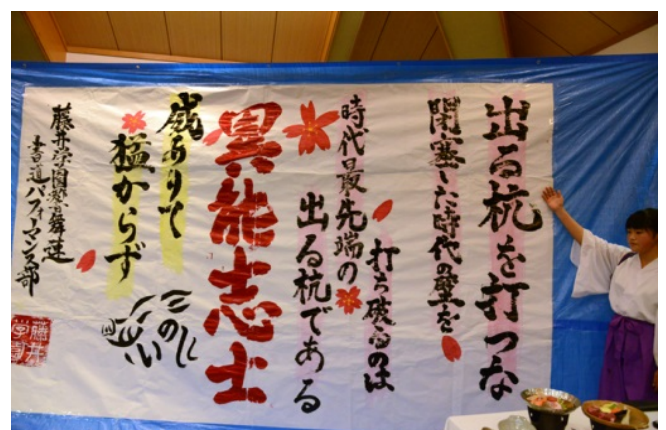 出る杭を打つな
閉塞した時代の壁を
打ち破るのは
時代最先端の
出る杭である
異能志士
威ありて
猛からず
藤井学園
書道パフォーマンス部
藤井学園